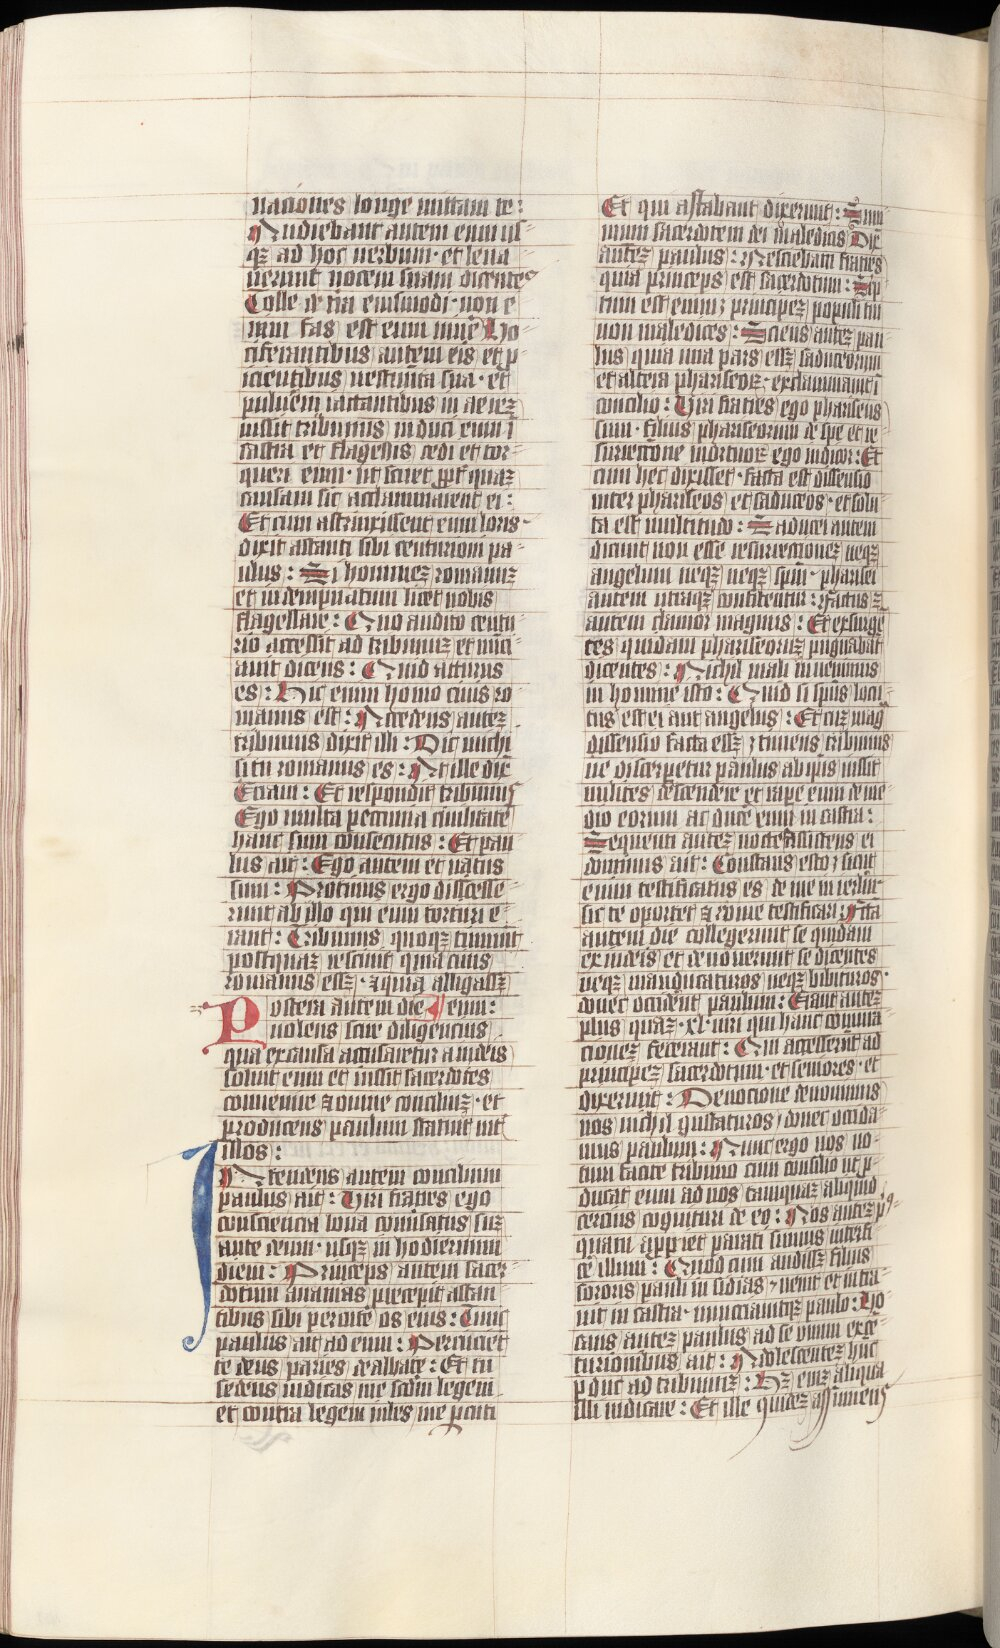 naciones longe mittam te:
Audiebant autem eum us-
qꝫ ad hoc uerbum· et leua
uerunt uocem suam dicentes
Tolle de t̄ra eiusmodi· non e
nim fas est eum uiuē Uo
ciferantibus autem eis et p-
icientibus uestimēta sua· et
puluēm iactantibus in aerez
iussit tribunus induci eum ī
castra et flagellis cedi et tor-
queri eum· ut sciret ꝓpt̄ quaꝫ
causam sic acclammarent ei:
Et cum astrinxissent eum loris·
dixit astanti sibi centurioni pa
ulus: Si hominez romanuꝫ
et indempnatum licet uobis
flagellare: Quo audito centu
rio accessit ad tribunuꝫ et nūci
auit dicens: Quid acturus
es: Hic enim homo ciuis ro
manus est: Accedens autez
tribunus dixit illi: Dic michi
si tu romanus es: At ille dix̄
Eciam: Et respondit tribunus
Ego multa peccunia ciuilitatē
hanc sum consecutus: Et pau
lus ait: Ego autem et natus
sum: Protinus ergo discesse-
runt ab illo qui eum torturi e-
rant: Tribunus quoqꝫ timuit
postquaꝫ resciuit quia ciuis
romanus essꝫ· ⁊ quia alligassꝫ
Postera autem die eum:
uolens scire diligencius
qua ex causa accusaretur a iudeis
soluit eum et iussit sacerdotes
conuenire ⁊ omne conciliuꝫ· et
producens paulum statuit int̄
illos:
Intendens autem concilium
paulus ait: Uiri fratres ego
consciencia bona conūsatus suꝫ
ante deum· usqꝫ in hodiernum
diem: Princeps autem sacer-
dotum ananias precepit astan
tibus sibi percutē os eius: Tunc
paulus ait ad eum: Percuciet
te deus paries dealbate: Et tu
sedens iudicas me scdm legem
et contra legem iubes me ꝑcuti
Et qui astabant dixerunt: Sum-
mum sacerdotem dei maledicis Dix̄
autez paulus: Nesciebam fratres
quia princeps est sacerdotum: Scrip
tum est enim; principez populi tui
non maledices: Sciens autez pau
lus quia una pars essꝫ saduceorum
et altera phariseoꝝ· exclammauit ī
concilio: Uiri fratres ego phariseus
sum· filius phariseorum de spe et re
surrectione mortuoꝝ ego iudicor: Et
cum hec dixisset· facta est dissensio
inter phariseos et saduceos· et solu
ta est multitudo: Saducei autem
dicunt non esse resurrectionez neqꝫ
angelum neqꝫ neqꝫ spm̄· pharisei
autem utraqꝫ confitentur: Factus ē
autem clamor magnus: Et exsurgē
tes quidam phariseoruꝫ pugnabāt
dicentes: Nichil mali inuenimus
in homine isto: Quid si spūs locu
tus est ei aut angelus: Et cuꝫ mag
dissensio facta essꝫ; timens tribunus
ne discerpetur paulus ab ip̄is iussit
milites descendere et rape eum de me
dio eorum ac ducē eum in castra:
Sequenti autez nocte assistens ei
dominus ait: Constans esto; sicut
enim testificatus es de me in ierlm̄·
sic te oportet ⁊ rome testificari: Fc̄a
autem die collegerunt se quidam
ex iudeis et deuouerunt se dicentes
neqꝫ manducaturos neqꝫ bibituros·
donec occidēnt paulum: Erant autez
plus quaꝫ ·xl· uiri qui hanc coniura
cionez fecerant: Qui accesserūt ad
principez sacerdotum· et seniores· et
dixerunt: Deuocione deuouimus
nos nichil gustaturos; donec occida-
mus paulum: Nunc ergo uos no-
tum facite tribuno cum concilio ut p-
ducat eum ad uos tamquaꝫ aliquid
cercius cognituri de eo: Nos autez ṗ9-
quam appriet parati sumus interfi
cē illum: Quod cum audissꝫ filius
sororis pauli insidias; uenit et intra-
uit in castra· nunciauitqꝫ paulo: Uo
cans autez paulus ad se unum ex cē-
turionibus ait: Adolescentez hūc
pduc ad tribunuꝫ: Hꝫ enim aliqua
illi iudicare: Et ille quidez assumens